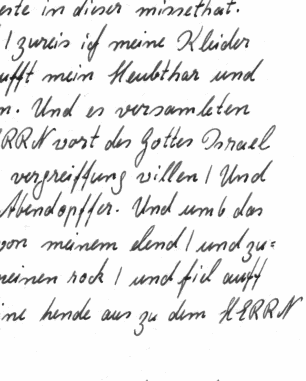 erste in dieser missethat.
/ zureis ich meine Kleider
aufft mein Heubthar und
n. Und es versamleten
ERRN wort des Gottes Israel
vergreiffung villen / Und
Abendopffer. Und umb das
von meinem elend / und zu=
meinen rock / und fiel auff
ine hende aus zu dem HERRN